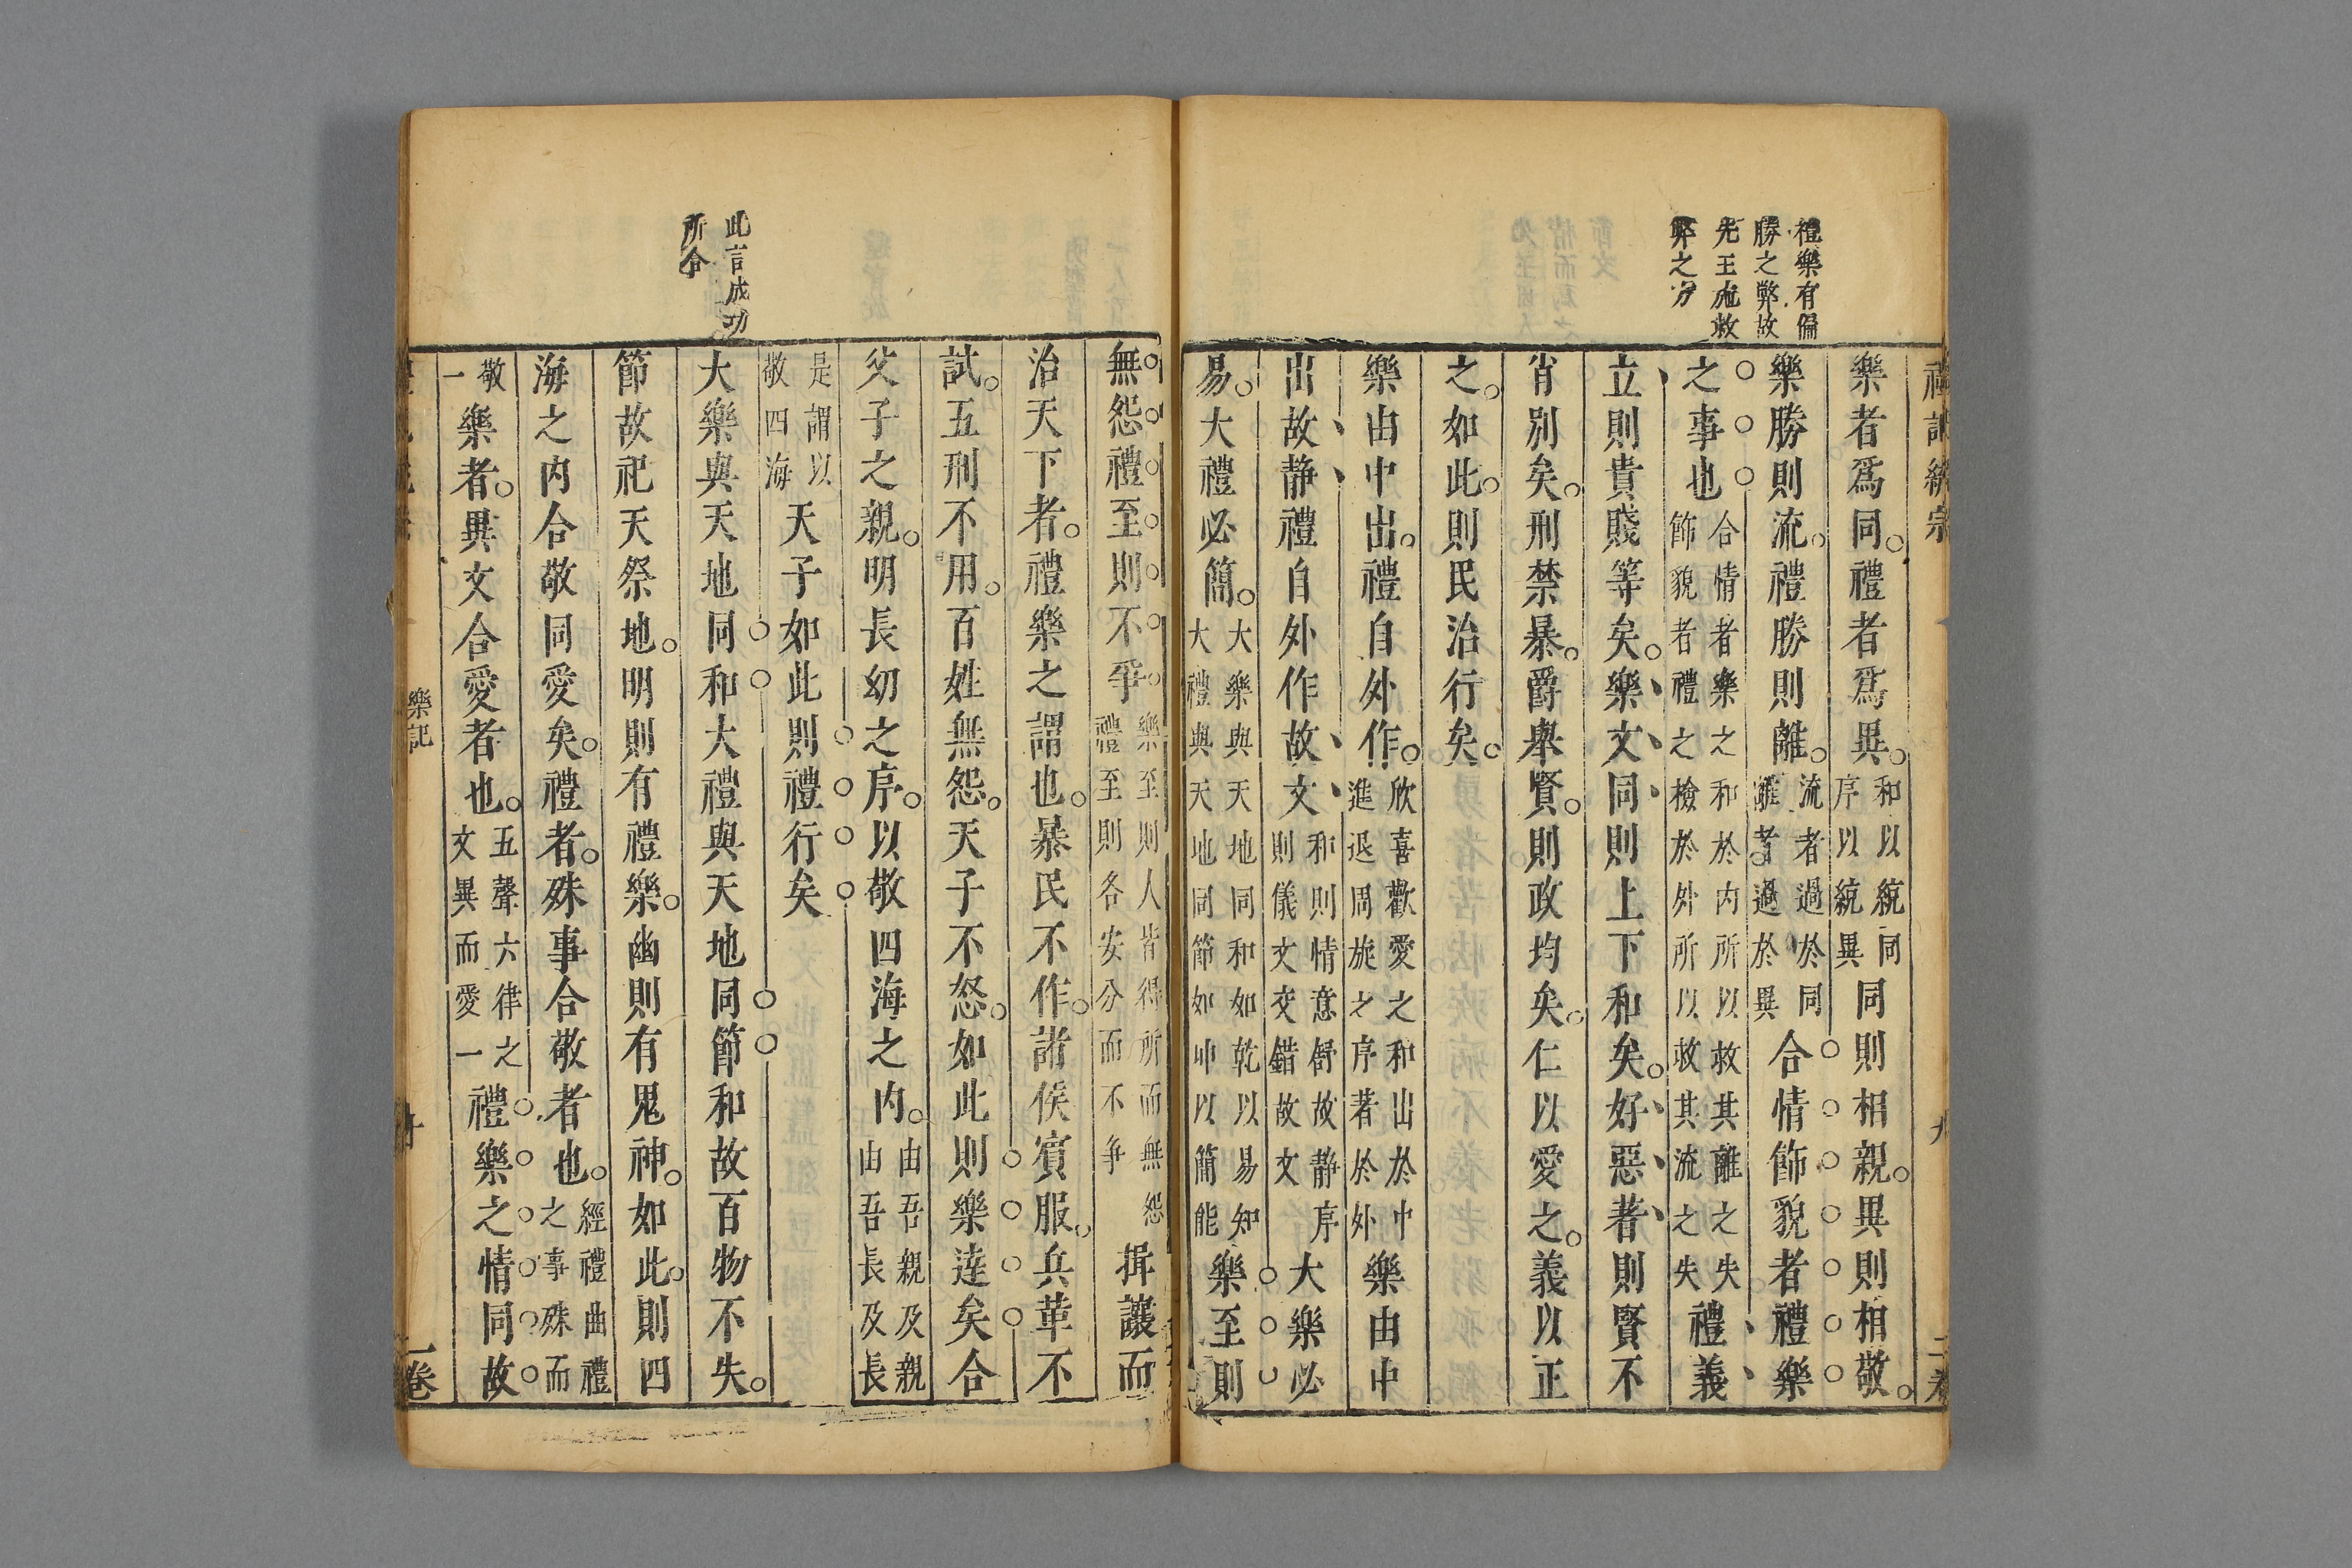 禮樂有偏
勝之弊故
先王施救
弊之方
樂者爲同。禮者爲異。和以統同序以統異同則相親。異則相敬。
樂勝則流。禮勝則離。流者過於同離者過於異合情飾貌者禮樂
之事也合情者樂之和於内所以救其離之失飾貌者禮之檢於外所以救其流之失禮義
立則貴賤等矣。樂文同則上下和矣。好惡著則賢不
肖別矣。刑禁暴。爵舉賢。則政均矣。仁以愛之。義以正
之。如此。則民治行矣。
樂由中出。禮自外作。欣喜歡愛之和出於中進退周旋之序著於外樂由中
出故静禮自外作故文和則情意舒故静序則儀文交錯故文大樂必
易。大禮必簡。大樂與天地同和如乾以易知大禮與天地同節如坤以簡能樂至則
此言成功
所合
無怨禮至則不爭樂至則人皆得所而無怨禮至則各安分而不争揖讓而
治天下者。禮樂之謂也。暴民不作。諸侯賓服。兵革不
試。五刑不用。百姓無怨。天子不怒。如此則樂達矣合
父子之親。明長幼之序。以敬四海之内。由吾親及親由吾長及長
是謂以敬四海天子如此則禮行矣
大樂與天地同和大禮與天地同節和故百物不失。
節故祀天祭地。明則有禮樂。幽則有鬼神。如此。則四
海之内合敬同愛矣。禮者。殊事合敬者也。經禮曲禮之事殊而
敬一樂者。異文合愛者也。五聲六律之文異而愛一禮樂之情同故
樂記